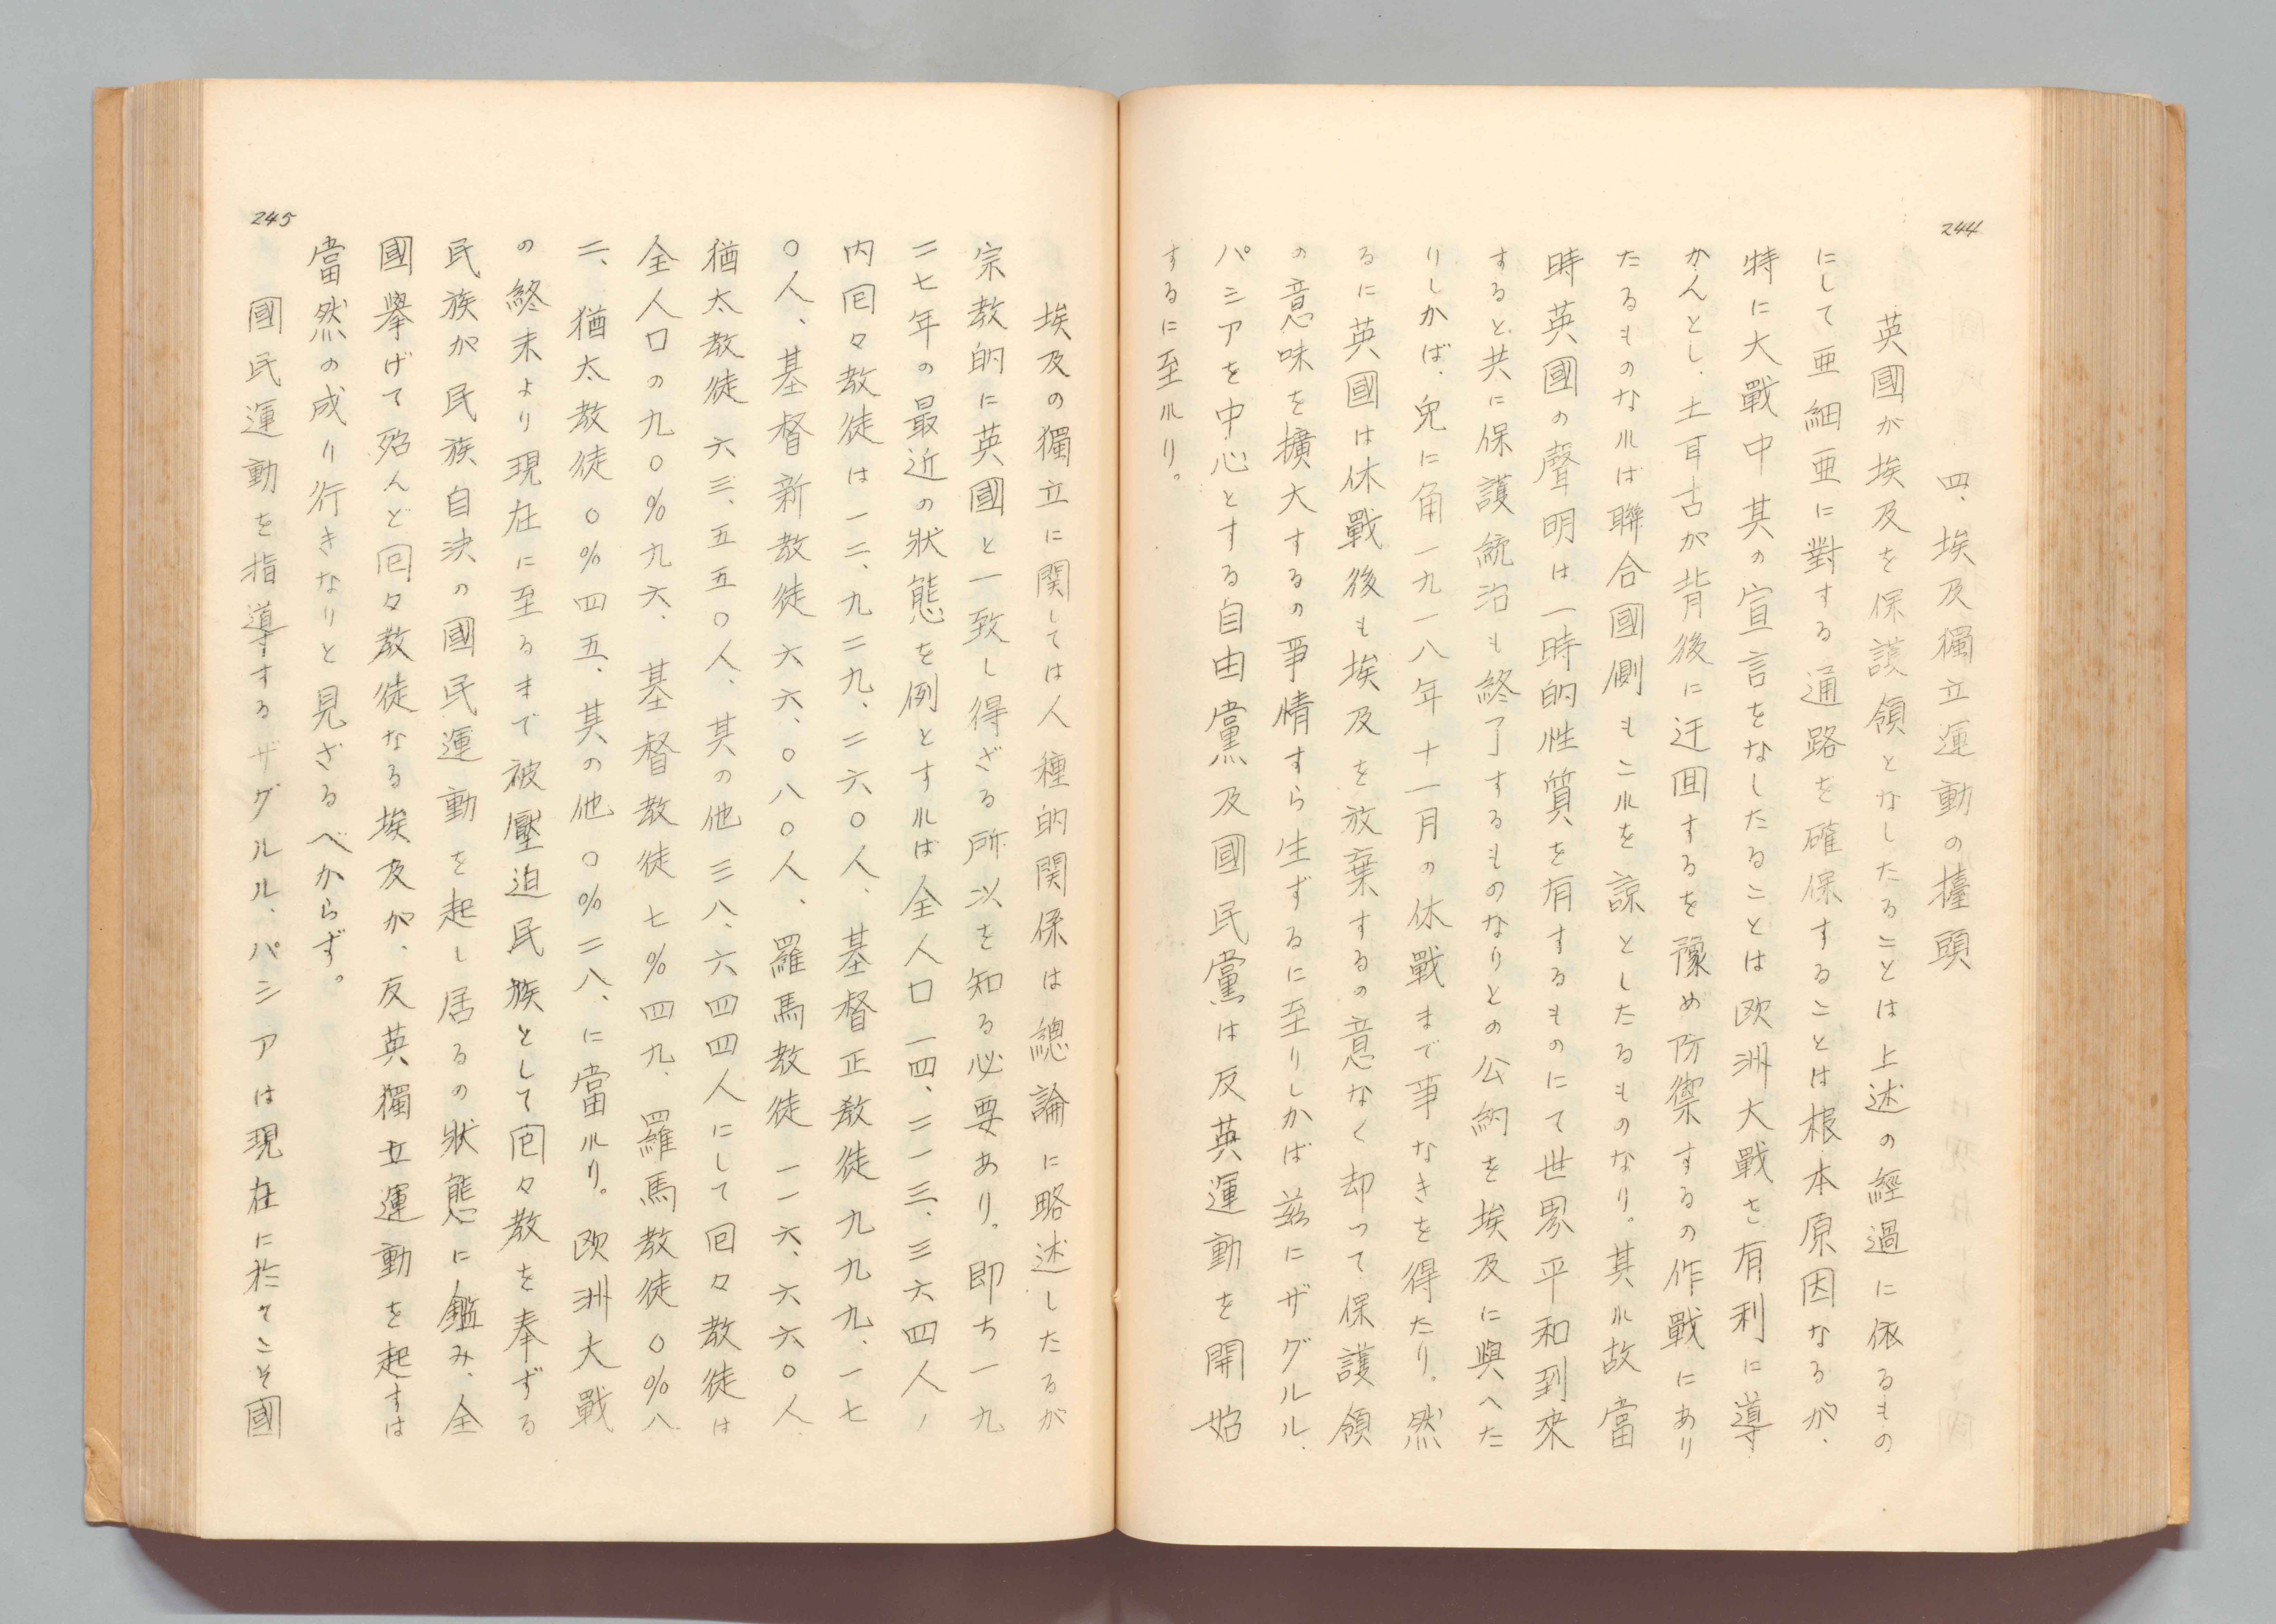 244
四、埃及獨立運動の擡頭
英國が埃及を保護領となしたることは上述の經過に依るもの
にして亜細亜に對する通路を確保することは根本原因なるが、
特に大戰中其の宣言をなしたることは欧洲大戰を有利に導
かんとし、土耳古が背後に迂囬するを豫め防禦するの作戰にあり
たるものなれば聯合國側もこれを諒としたるものなり。其れ故當
時英國の聲明は一時的性質を有するものにて世界平和到來
すると共に保護統治も終了するものなりとの公約を埃及に與へた
りしかば、兎に角一九一八年十一月の休戰まで事なきを得たり。然
るに英國は休戰後も埃及を放棄するの意なく却って保護領
の意味を擴大するの事情すら生ずるに至りしかば茲にザグルル、
パシアを中心とする自由黨及國民黨は反英運動を開始
するに至れり。
245
埃及の獨立に関しては人種的関係は總論に略述したるが
宗教的に英國と一致し得ざる所以を知る必要あり。即ち一九
二七年の最近の狀態を例とすれば全人口一四、二一三、三六四人ノ
内囘々教徒は一二、九二九、二六〇人、基督正教徒九九九、一七
〇人、基督新教徒六六、〇八〇人、羅馬教徒一一六、六六〇人
猶太教徒六三、五五〇人、其の他三八、六四四人にして囘々教徒は
全人口の九〇%九六、基督教徒七%四九、羅馬教徒〇%八
二、猶太教徒〇%四五、其の他〇%二八、に當れり。欧洲大戰
の終末より現在に至るまで被壓迫民族として囘々教を奉ずる
民族が民族自決の國民運動を起し居るの狀態に鑑み、全
國擧げて殆んど囘々教徒なる埃及が、反英獨立運動を起すは
當然の成り行きなりと見ざるべからず。
國民運動を指導するザグルル、パシアは現在に於てこそ國